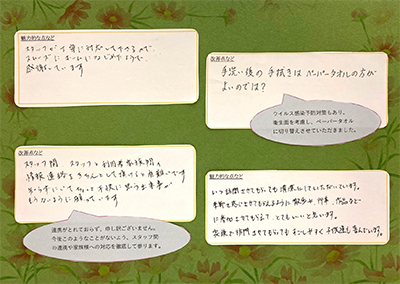 魅力的な点など
スタッフが丁寧に対応して下さるので、
スムーズにホームになじめたようで、
感謝しています
改善点など
手洗い後の手拭きはペーパータオルの方が
よいのでは？
ウイルス感染予防対策もあり、
衛生面を考慮し、ペーパータオル
に切り替えさせていただきました。
改善点など
スタッフ間、スタッフと利用者家族間の
情報連絡をきちんとして頂けると有難いです
そうすいこでなって不快に思う出来事が
ないように願っています
連携がとれておらず、申し訳ございません。
今後このようなことがないよう、スタッフ間
の連携や家族様への対応を徹底して参ります。
魅力的な点など
いつ訪問させてもらっても清潔にしていただいています。
季節を感じさせてもらえるように散歩や、行事、作品など
に参加させてもらえて とてもいいと思います。
家族で訪問させてもらっても 子供達も喜んでいます。